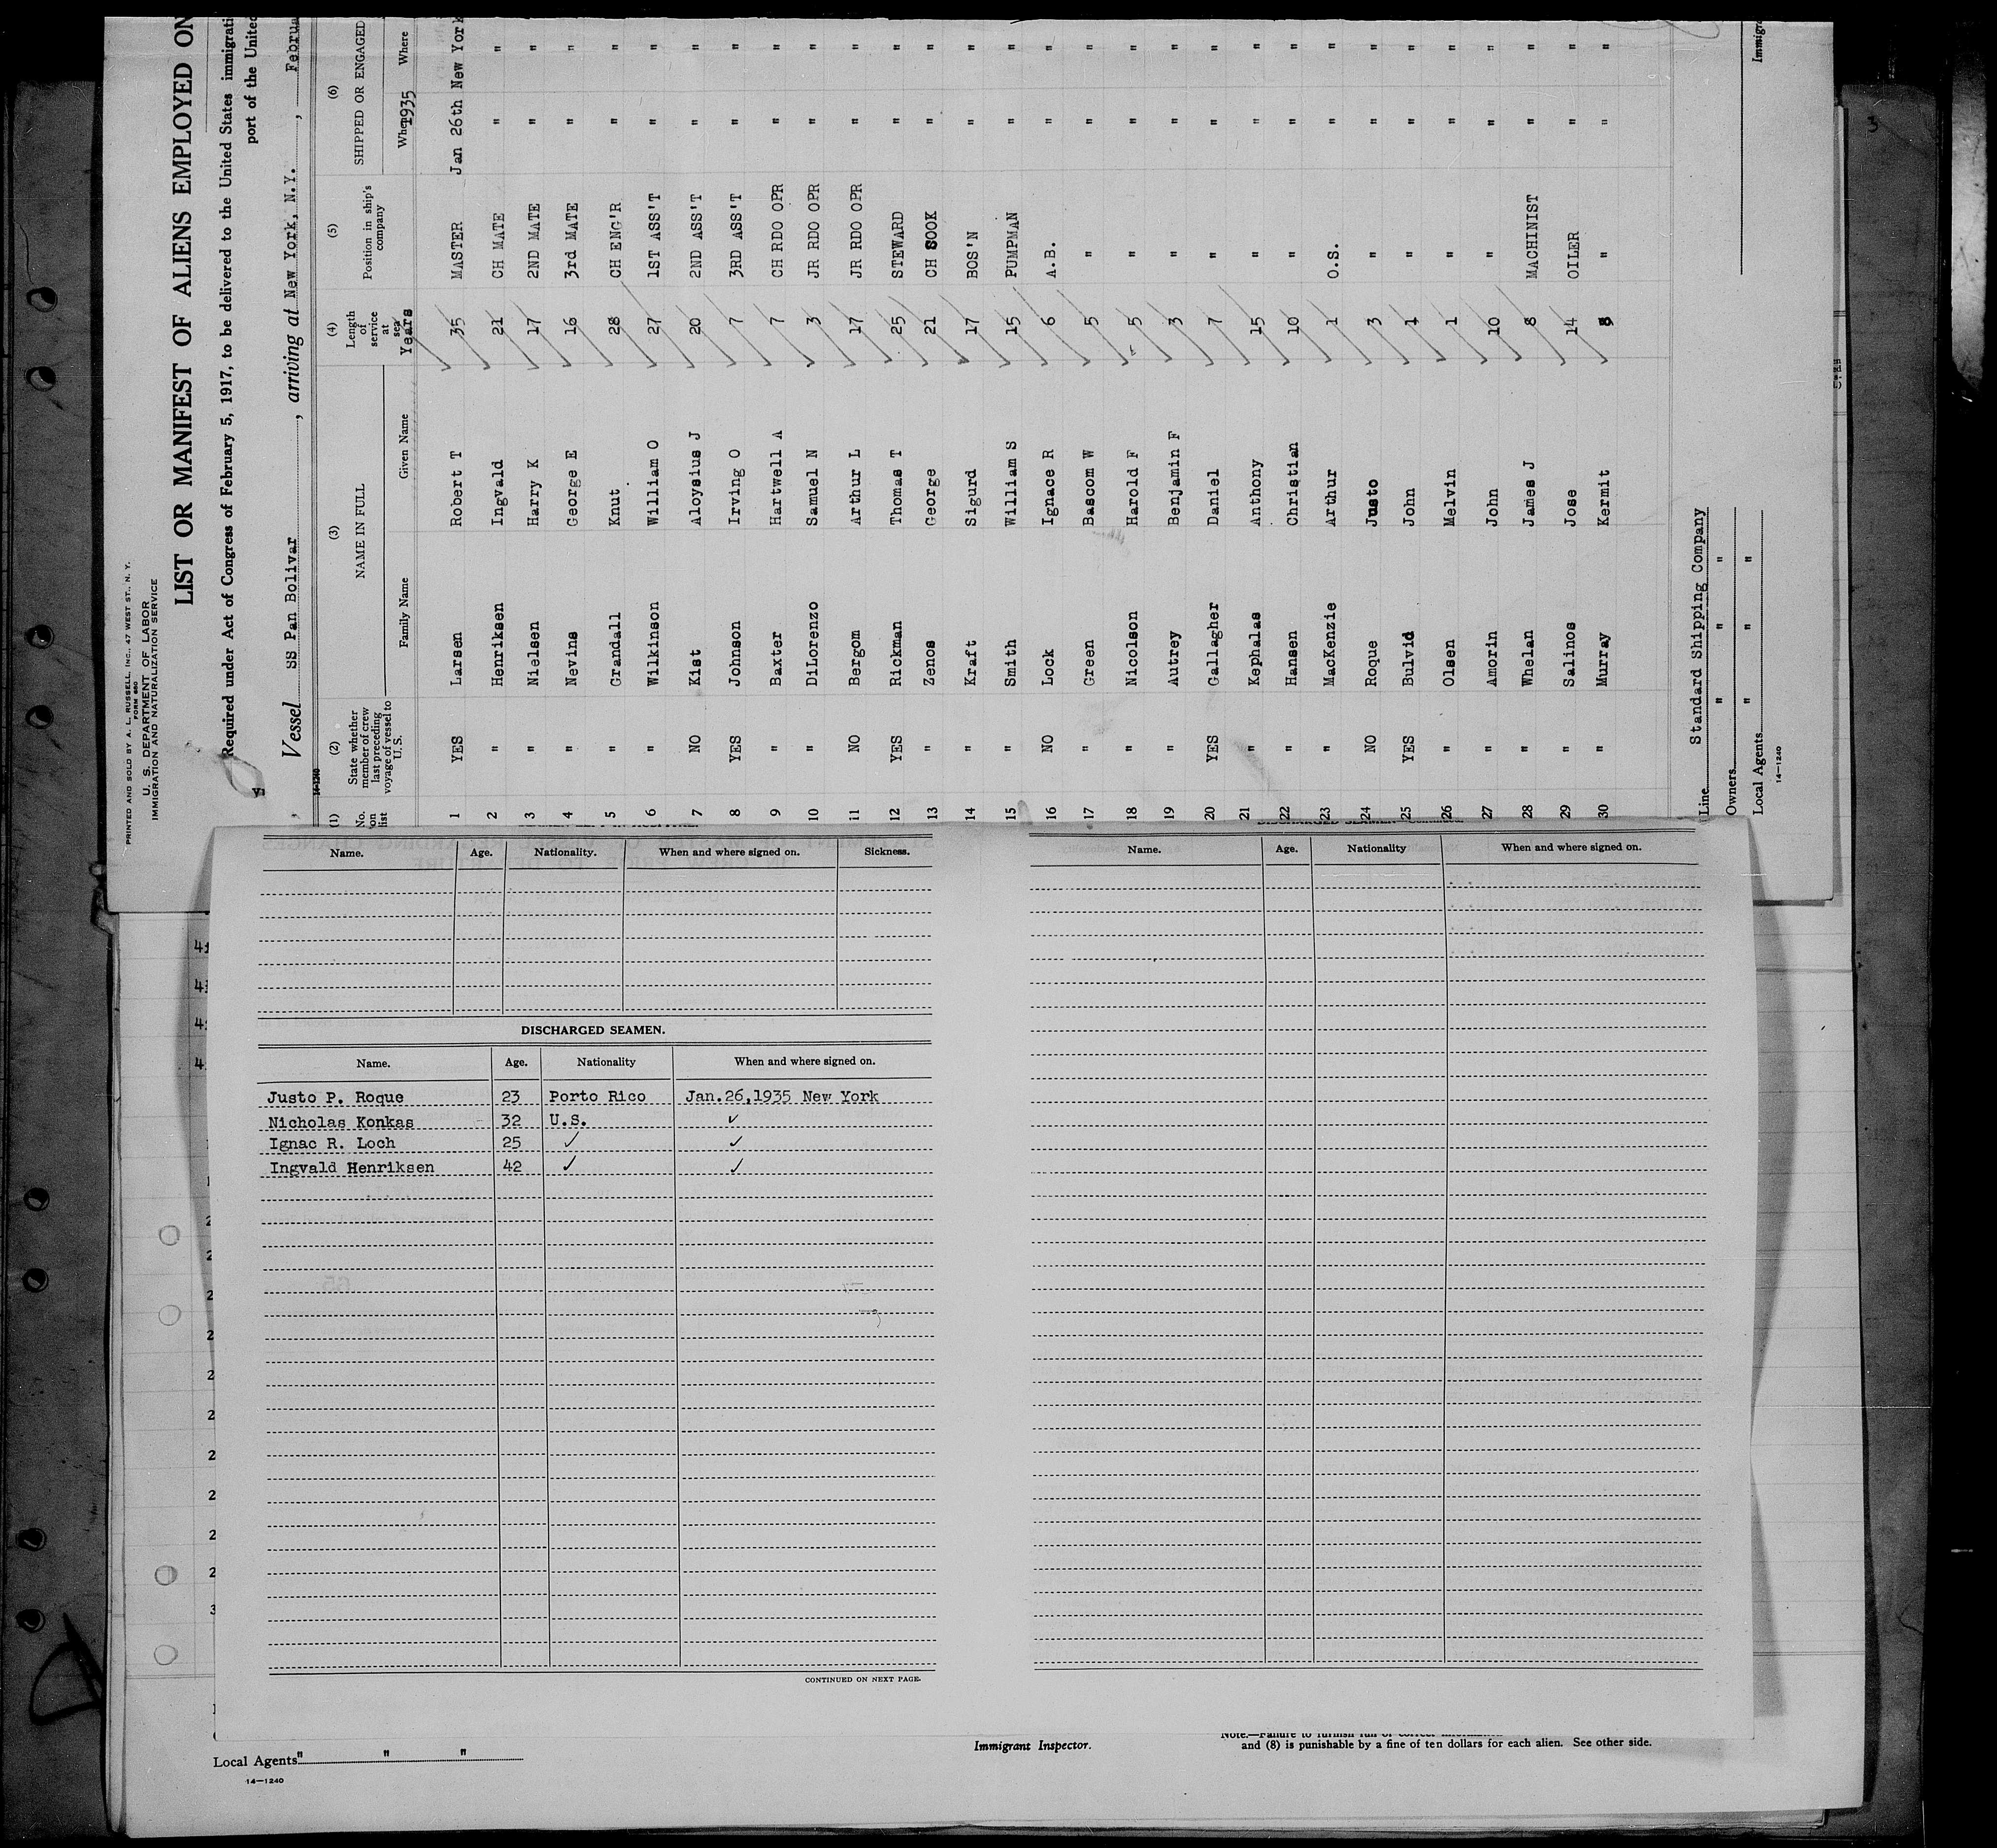 PRINTED AND SOLD BY A. L. RUSSELL, INC., 47 WEST ST., N. Y.
FORM 680
U. S. DEPARTMENT OF LABOR
IMMIGRATION AND NATURALIZATION SERVICE
LIST OR MANIFEST OF ALIENS EMPLOYED ON
Required under Act of Congress of February 5, 1917, to be delivered to the United States immigrati
port of the United
Vessel SS Pan Bolivar, arriving at New York, N.Y., Februa
14-1240
(1) (2) (3) (4) (5) (6)
No. on list State whether member of crew last preceding voyage of vessel to U. S. NAME IN FULL Length of service at sea Position in ship's company SHIPPED OR ENGAGED
Family Name Given Name Years When Where
1935
1 YES Larsen Robert T 35 MASTER Jan 26th New York
2 " Henriksen Ingvald 21 CH MATE " "
3 " Nielsen Harry K 17 2ND MATE " "
4 " Nevins George E 16 3rd MATE " "
5 " Grandall Knut 28 CH ENG'R " "
6 " Wilkinson William O 27 1ST ASS'T " "
7 NO Kist Aloysius J 20 2ND ASS'T " "
8 YES Johnson Irving O 7 3RD ASS'T " "
9 " Baxter Hartwell A 7 CH RDO OPR " "
10 " DiLorenzo Samuel N 3 JR RDO OPR " "
11 NO Bergom Arthur L 17 JR RDO OPR " "
12 YES Rickman Thomas T 25 STEWARD " "
13 " Zenos George 21 CH COOK " "
14 " Kraft Sigurd 17 BOS'N " "
15 " Smith William S 15 PUMPMAN " "
16 NO Lock Ignace R 6 A.B. " "
17 " Green Bascom W 5 " " "
18 " Nicolson Harold F 5 " " "
19 " Autrey Benjamin F 3 " " "
20 YES Gallagher Daniel 7 " " "
21 " Kephalas Anthony 15 " " "
22 " Hansen Christian 10 " " "
23 " MacKenzie Arthur 1 O.S. " "
24 NO Roque Justo 3 " " "
25 YES Bulvid John 1 " " "
26 " Olsen Melvin 1 " " "
27 " Amorin John 10 " " "
28 " Whelan James J 8 MACHINIST " "
29 " Salinos Jose 14 OILER " "
30 " Murray Kermit 8 " " "
Line Standard Shipping Company
Owners " " "
Local Agents " " "
14-1240
Immigr
3
Name. Age. Nationality. When and where signed on. Sickness.
DISCHARGED SEAMEN.
Name. Age. Nationality When and where signed on.
Justo P. Roque 23 Porto Rico Jan.26,1935 New York
Nicholas Konkas 32 U.S. ✓
Ignac R. Loch 25 ✓ ✓
Ingvald Henriksen 42 ✓ ✓
CONTINUED ON NEXT PAGE.
Name. Age. Nationality When and where signed on.
Local Agents " " "
14-1240
Immigrant Inspector.
Note.—Failure to furnish full or correct information
and (8) is punishable by a fine of ten dollars for each alien. See other side.